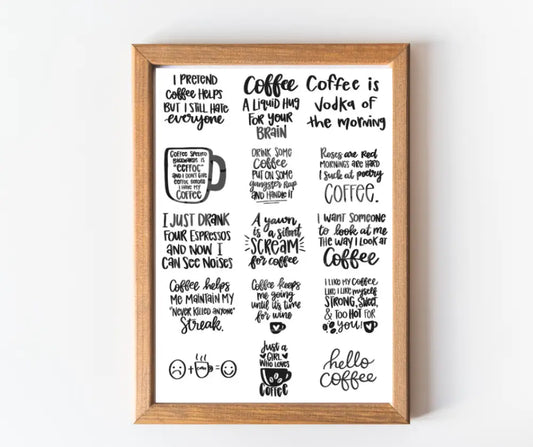 I PRETEND
Coffee HELPS
BUT I STILL HATE
everyone
Coffee
A LIQUID HUG
FOR YOUR
BRAIN
Coffee is
vodka of
the morning
COFFEE SPELLED
BACKWARDS IS
"EEFFOC"
AND I DON'T GIVE
EEFFOC BEFORE
I HAVE MY
COFFEE
DRINK SOME
Coffee
PUT ON SOME
gangster Rap
AND HANDLE IT
Roses are Red
MORNINGS ARE HARD
I suck at poetry
COFFEE.
I JUST DRANK
FOUR ESPRESSOS
AND NOW I
CAN SEE NOISES
A yawn
is a silent
SCREAM
for coffee
I WANT SOMEONE
to look at me
THE WAY I LOOK AT
Coffee
Coffee helps
ME MAINTAIN MY
"NEVER KILLED ANYONE"
Streak.
Coffee keeps
me going
until its time
for wine
I LIKE MY COFFEE
LIKE I LIKE myself
STRONG, SWEET,
& TOO HOT FOR
YOU!
Just a
GIRL
WHO LOVES
Coffee
hello
coffee